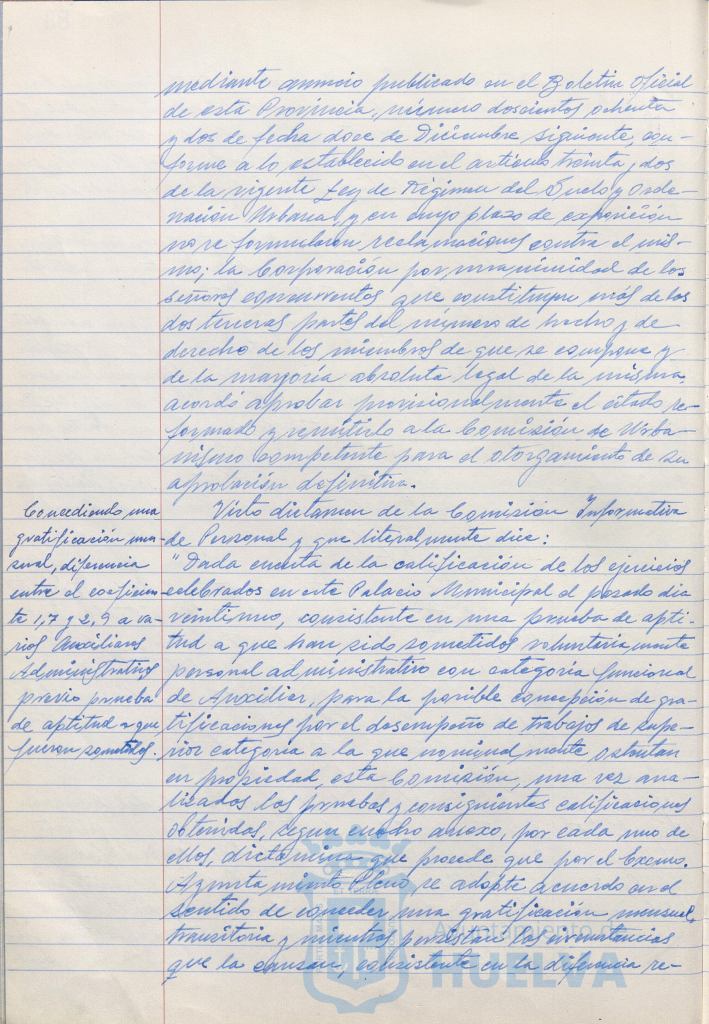 mediante anuncio publicado en el Boletín Oficial
de esta Provincia, número doscientos ochenta
y dos de fecha doce de Diciembre siguiente, con-
forme a lo establecido en el artículo treinta y dos
de la vigente Ley de Régimen del Suelo y Orde-
nación Urbana, y en cuyo plazo de exposición
no se formularon reclamaciones contra el mis-
mo; la Corporación por unanimidad de los
señores concurrentes que constituyen más de los
dos terceras partes del número de hecho y de
derecho de los miembros de que se compone y
de la mayoría absoluta legal de la misma,
acordó aprobar provisionalmente el citado re-
formado y remitirlo a la Comisión de Urba-
nismo competente para el otorgamiento de su
aprobación definitiva.
Concediendo una
gratificación men-
sual, diferencia
entre el coeficien-
te 1,7 y 2,9 a va-
rios Auxiliares
Administrativos
previo prueba
de aptitud a que
fueron sometidos.
Visto dictamen de la Comisión Informativa
de Personal y que literalmente dice:
"Dada cuenta de la calificación de los ejercicios
celebrados en este Palacio Municipal el pasado día
veintiuno, consistente en una prueba de apti-
tud a que han sido sometidos voluntariamente
personal administrativo con categoría funcional
de Auxiliar, para la posible concepción de gra-
tificaciones por el desempeño de trabajos de supe-
rior categoría a la que nominalmente ostentan
en propiedad, esta Comisión, una vez ana-
lizados las pruebas y consiguientes calificaciones
obtenidas, según cuadro anexo, por cada uno de
ellos, dictamina que procede que por el Excmo.
Ayuntamiento Pleno se adopte acuerdo en el
sentido de conceder una gratificación mensual,
transitoria y mientras persistan las circunstancias
que la causan, consistente en la diferencia re-
Ayuntamiento de
HUELVA